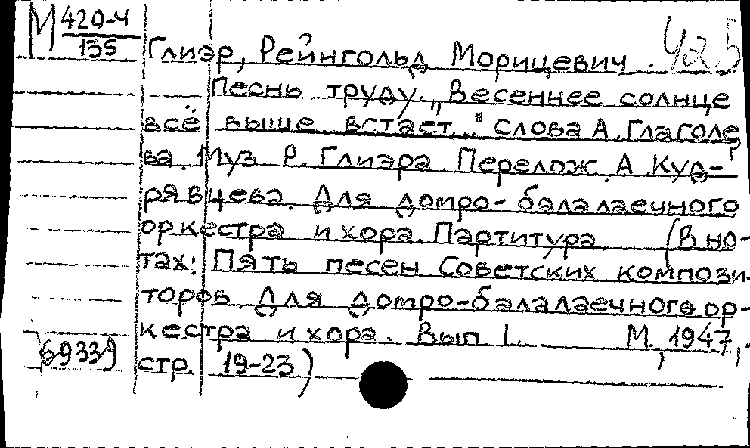 М 420-4
135
425
Глиэр, Рейнгольд Морицевич.
Песнь труду. „Весеннее солнце
всё выше встает..." Слова А. Глаголе-
ва. Муз. Р. Глиэра. Перелож. А. Куд-
рявцева. Для домро-балалаечного
оркестра и хора. Партитура. (В но-
тах: Пять песен Советских компози-
торов. Для домро-балалаечного ор-
кестра и хора. Вып. 1. М., 1947,
69339
стр. 19-23)